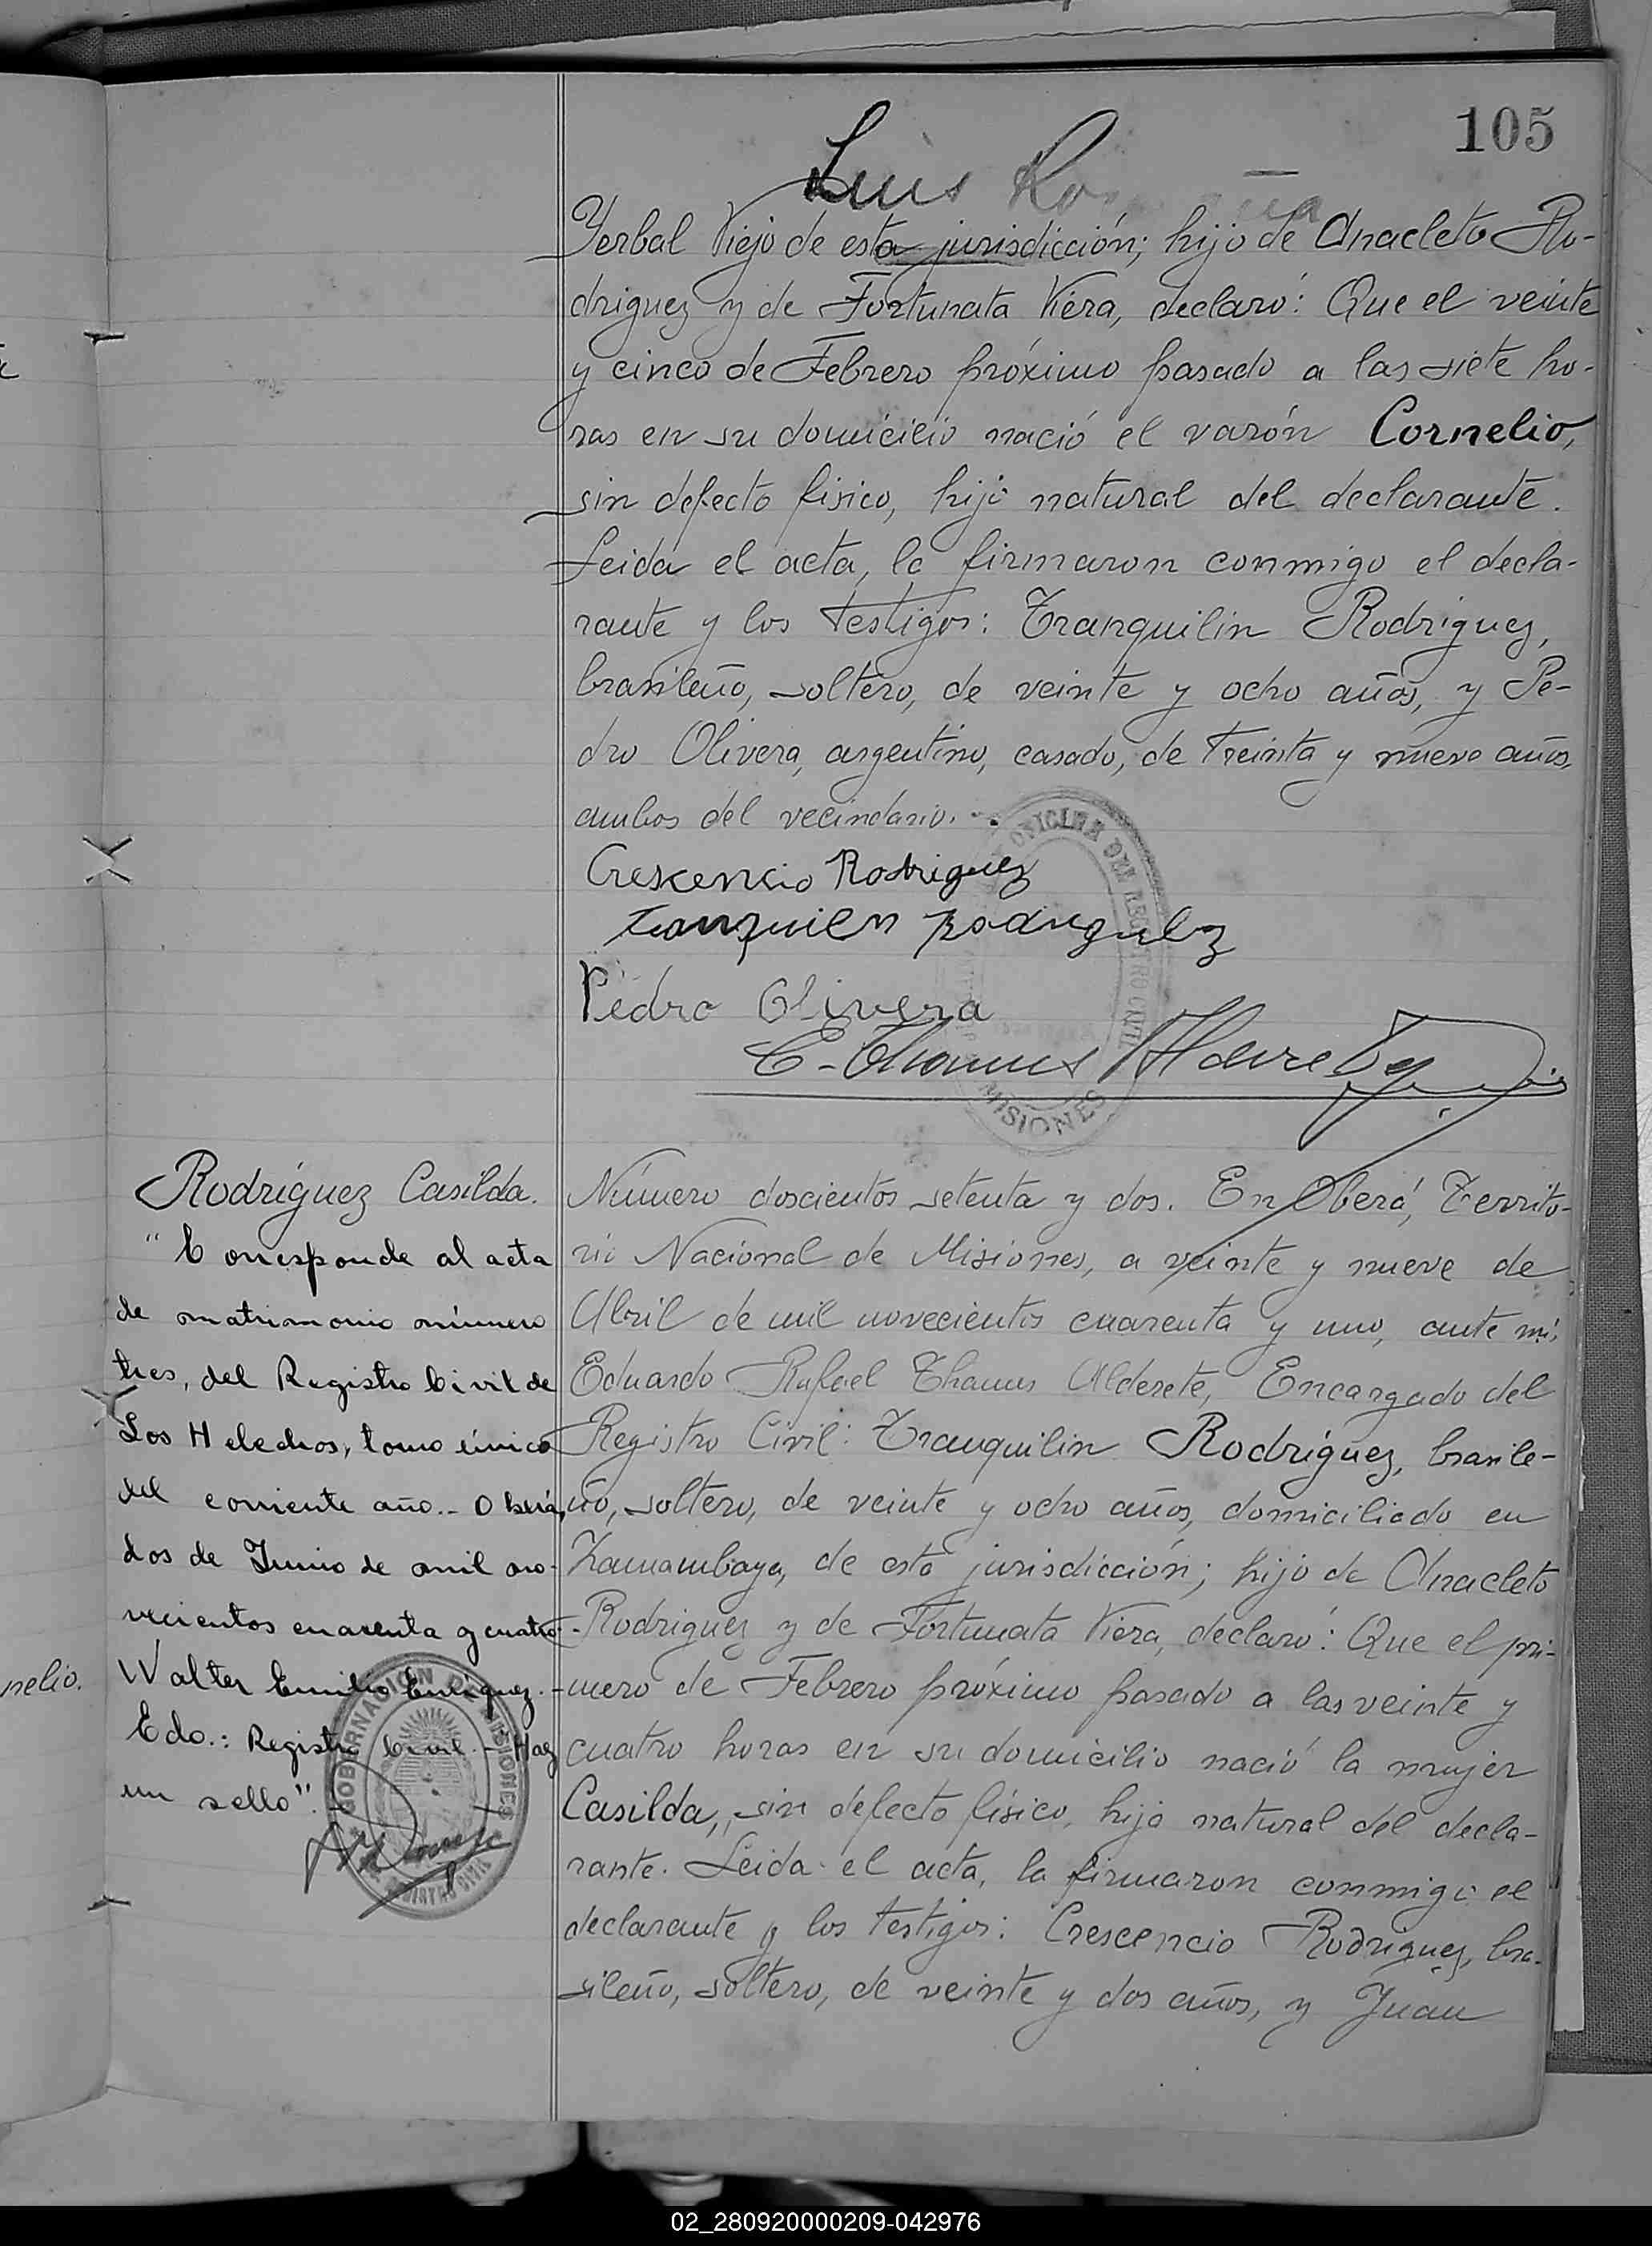 105
Luis
Yerbal Viejo de esta jurisdicción; hijo de Anacleto Ro-
driguez y de Fortunata Viera, declaró: Que el veinte
y cinco de Febrero próximo pasado a las siete ho-
ras en su domicilio nació el varón Cornelio,
sin defecto fisico, hijo natural del declarante.
Leida el acta, la firmaron conmigo el decla-
rante y los testigos: Tranquilin Rodriguez,
brasileño, soltero, de veinte y ocho años, y Pe-
dro Olivera, argentino, casado, de treinta y nueve años,
ambos del vecindario.
OFICINA DEL REGISTRO CIVIL
Crescencio Rodriguez
Tranquilin Rodriguez
Pedro Olivera
E. Thamus Alderete
MISIONES
Rodríguez Casilda.
"Corresponde al acta
de matrimonio número
tres, del Registro Civil de
Los Helechos, tomo único
del corriente año.- Oberá,
dos de Junio de mil no-
vecientos cuarenta y cuatro.-
Walter Emilio Enriquez.-
Edo.: Registro Civil.- Hay
un sello".
GOBERNACION DE MISIONES
REGISTRO CIVIL
nelio.
Número doscientos setenta y dos. En Oberá, Territo-
rio Nacional de Misiones, a veinte y nueve de
Abril de mil novecientos cuarenta y uno, ante mí,
Eduardo Rafael Thamus Alderete, Encargado del
Registro Civil: Tranquilin Rodríguez, brasile-
ño, soltero, de veinte y ocho años, domiciliado en
de esta jurisdicción; hijo de Anacleto
Rodriguez y de Fortunata Viera, declaró: Que el pri-
mero de Febrero próximo pasado a las veinte y
cuatro horas en su domicilio nació la mujer
Casilda, sin defecto físico, hija natural del decla-
rante. Leida el acta, la firmaron conmigo el
declarante y los testigos: Crescencio Rodriguez, bra-
sileño, soltero, de veinte y dos años, y Juan
02_280920000209-042976